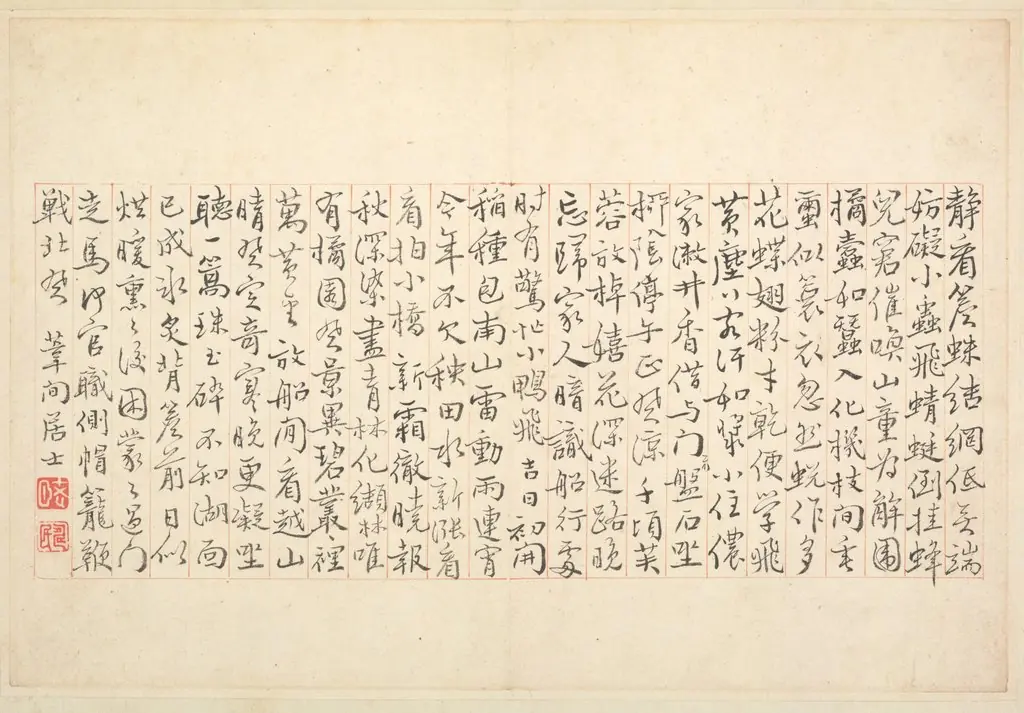 靜看簷蛛結網低無端
妨礙小蟲飛蜻蜓倒挂蜂
兒窘催喚山童為解圍
橘蠹如蠶入化機枝間垂
繭似蓑衣忽然蛻作多
花蝶翅粉才乾便學飛
黃塵行客汗如漿小住儂
家漱井香借与門前盤石坐
柳陰停午正風涼千頃芙
蓉放棹嬉花深迷路晚
忘歸家人暗識船行處
时有驚忙小鴨飛 吉日初開
稻種包南山雷動雨連宵
今年不欠秧田水新漲看
看拍小橋 新霜徹曉報
秋深染盡青林化纈林唯
有橘園風景異碧叢叢裡
萬黃金 放船閒看越山
晴風定奇寒晚更凝坐
聽一篙珠玉碎不知湖面
已成冰 炙背簷前日似
烘暖熏熏後困蒙蒙過門
走馬何官職側帽籠鞭
戰北風 葦間居士